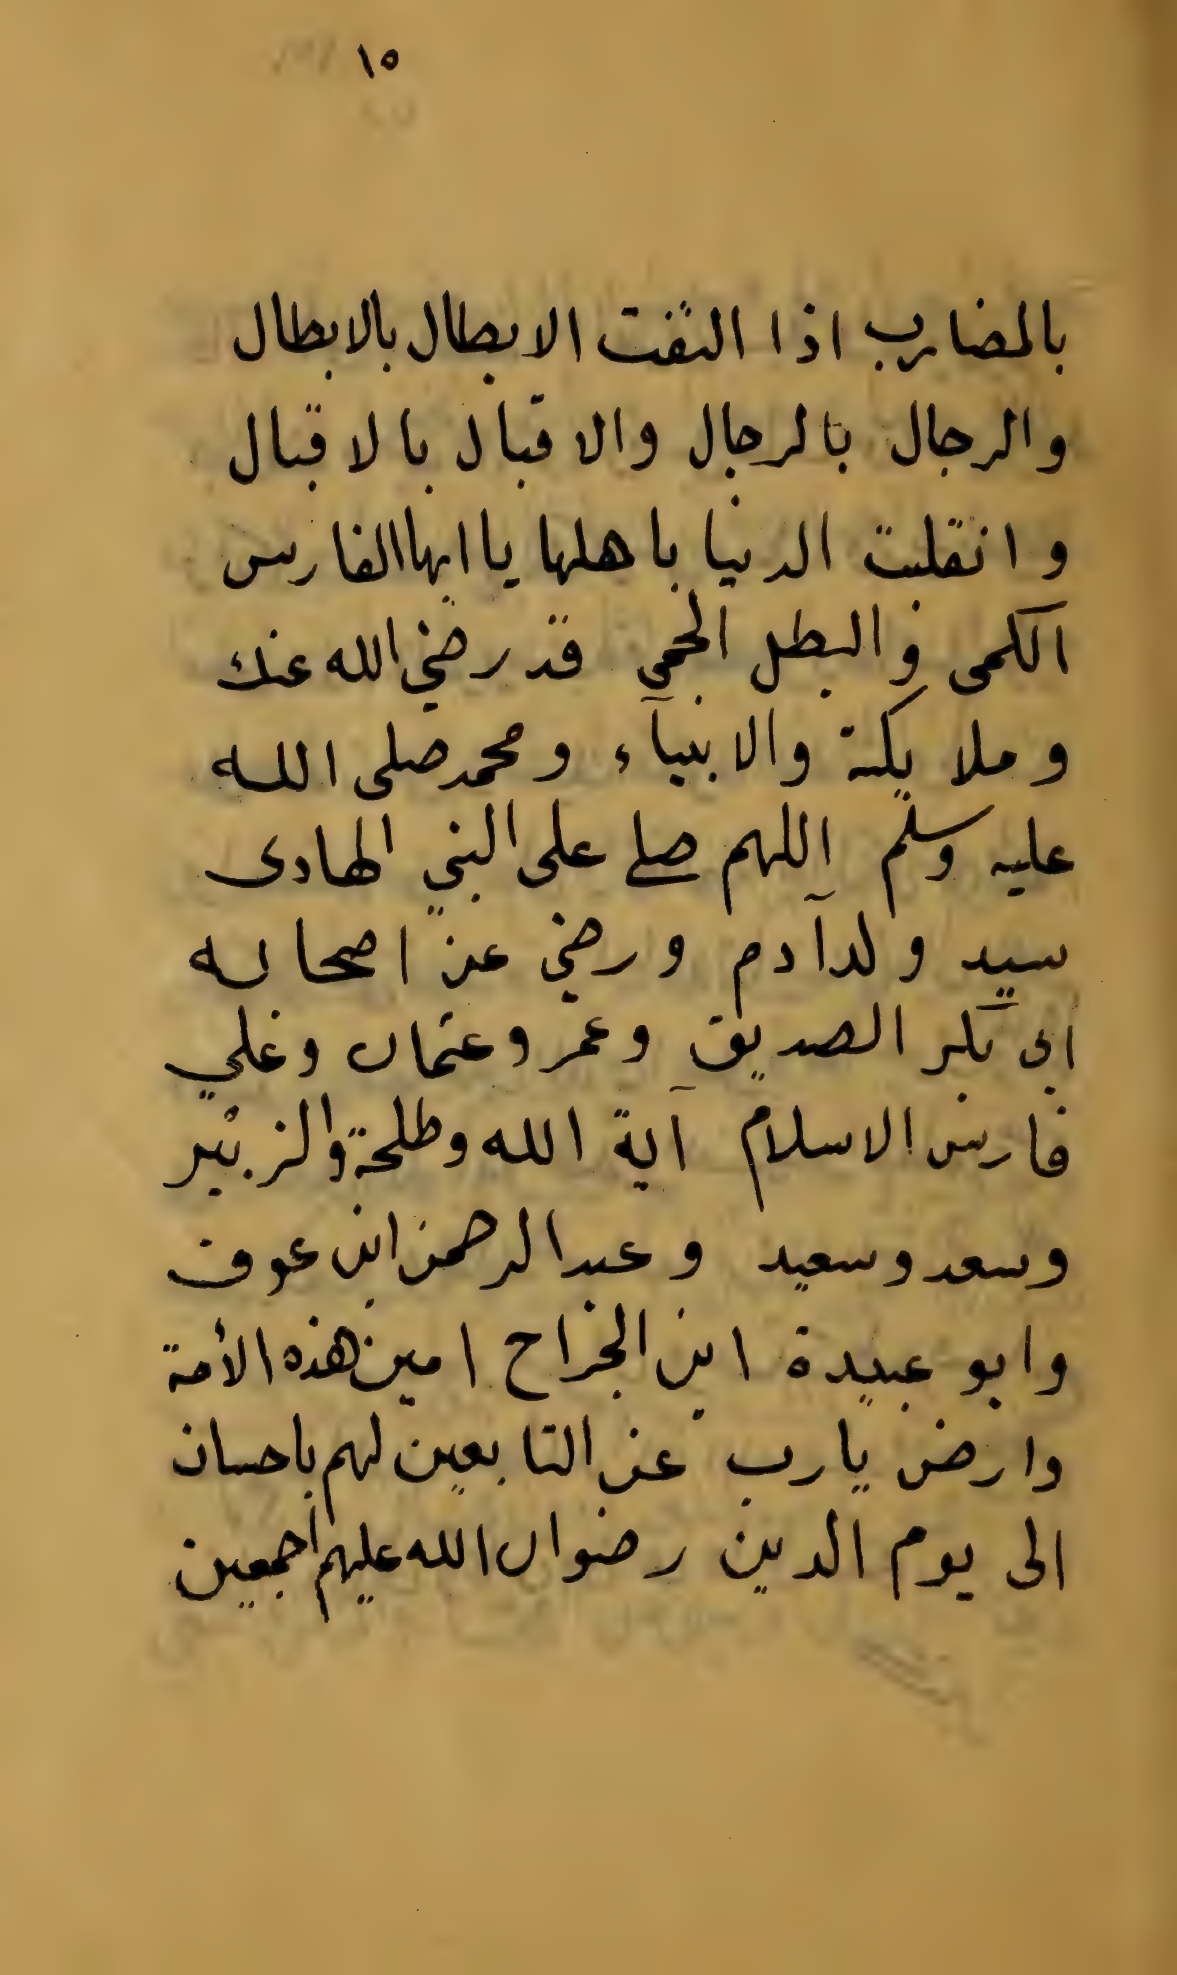 ١٥
بالمضارب اذا التفت الابطال بالابطال
والرجال بالرجال والاقبال بالاقبال
وانقلبت الدنيا باهلها يا ايها الفارس
الكمى والبطل الحمى قد رضي الله عنك
وملايكة والانبيآء ومحمد صلى الله
عليه وسلم اللهم صلے على النبي الهادى
سيد ولد آدم ورضي عن اصحابه
ابى بكر الصديق وعمر وعثمان وعلي
فارس الاسلام آية الله وطلحة والزبير
وسعد وسعيد وعبد الرحمن ابن عوف
وابو عبيدة ابن الجراح امين هذه الأمة
وارض يارب عن التابعين لهم باحسان
الى يوم الدين رضوان الله عليهم اجمعين